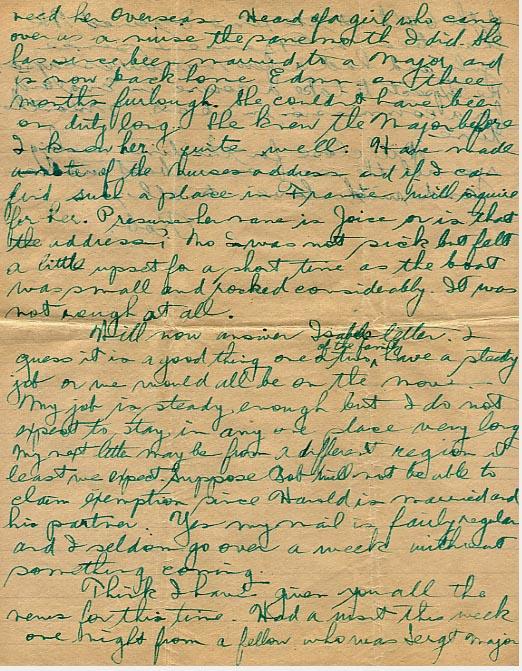 need her overseas. Heard of a girl who came
over as a nurse the same month I did. She
has since been married to a Major and
is now back home Edmn on three
months furlough. She couldn't have been
on duty long. She knew the Major before
I know her quite well. Have made
a note of the nurses address and if I can
find such a place in France will inquire
for her. Presume her name is Joice or is that
the address? No I was not sick but felt
a little upset for a short time as the boat
was small and rocked considerably. It was
not rough at all.
Will now answer Isabels letter. I
guess it is a good thing one of the family have a steady
job or we would all be on the move.
My job is steady enough but I do not
expect to stay in any one place very long
My next letter may be from a different region it
least we expect. Suppose Bob will not be able to
claim exemption since Harold is married and
his partner. Yes my mail is fairly regular
and I seldom go over a week without
something coming.
Think I have given you all the
news for this time. Had a visit this week
one night from a fellow who was Sergt Major